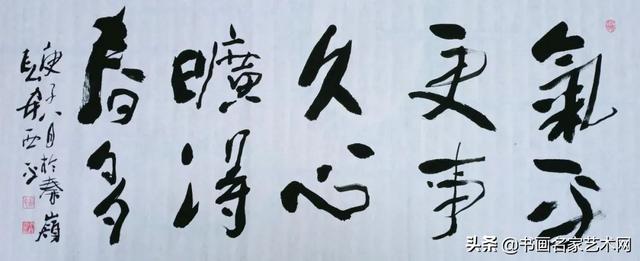 氣平
更事
久心
曠得
春多
庚子八月於秦嶺
头条 @书画名家艺术网